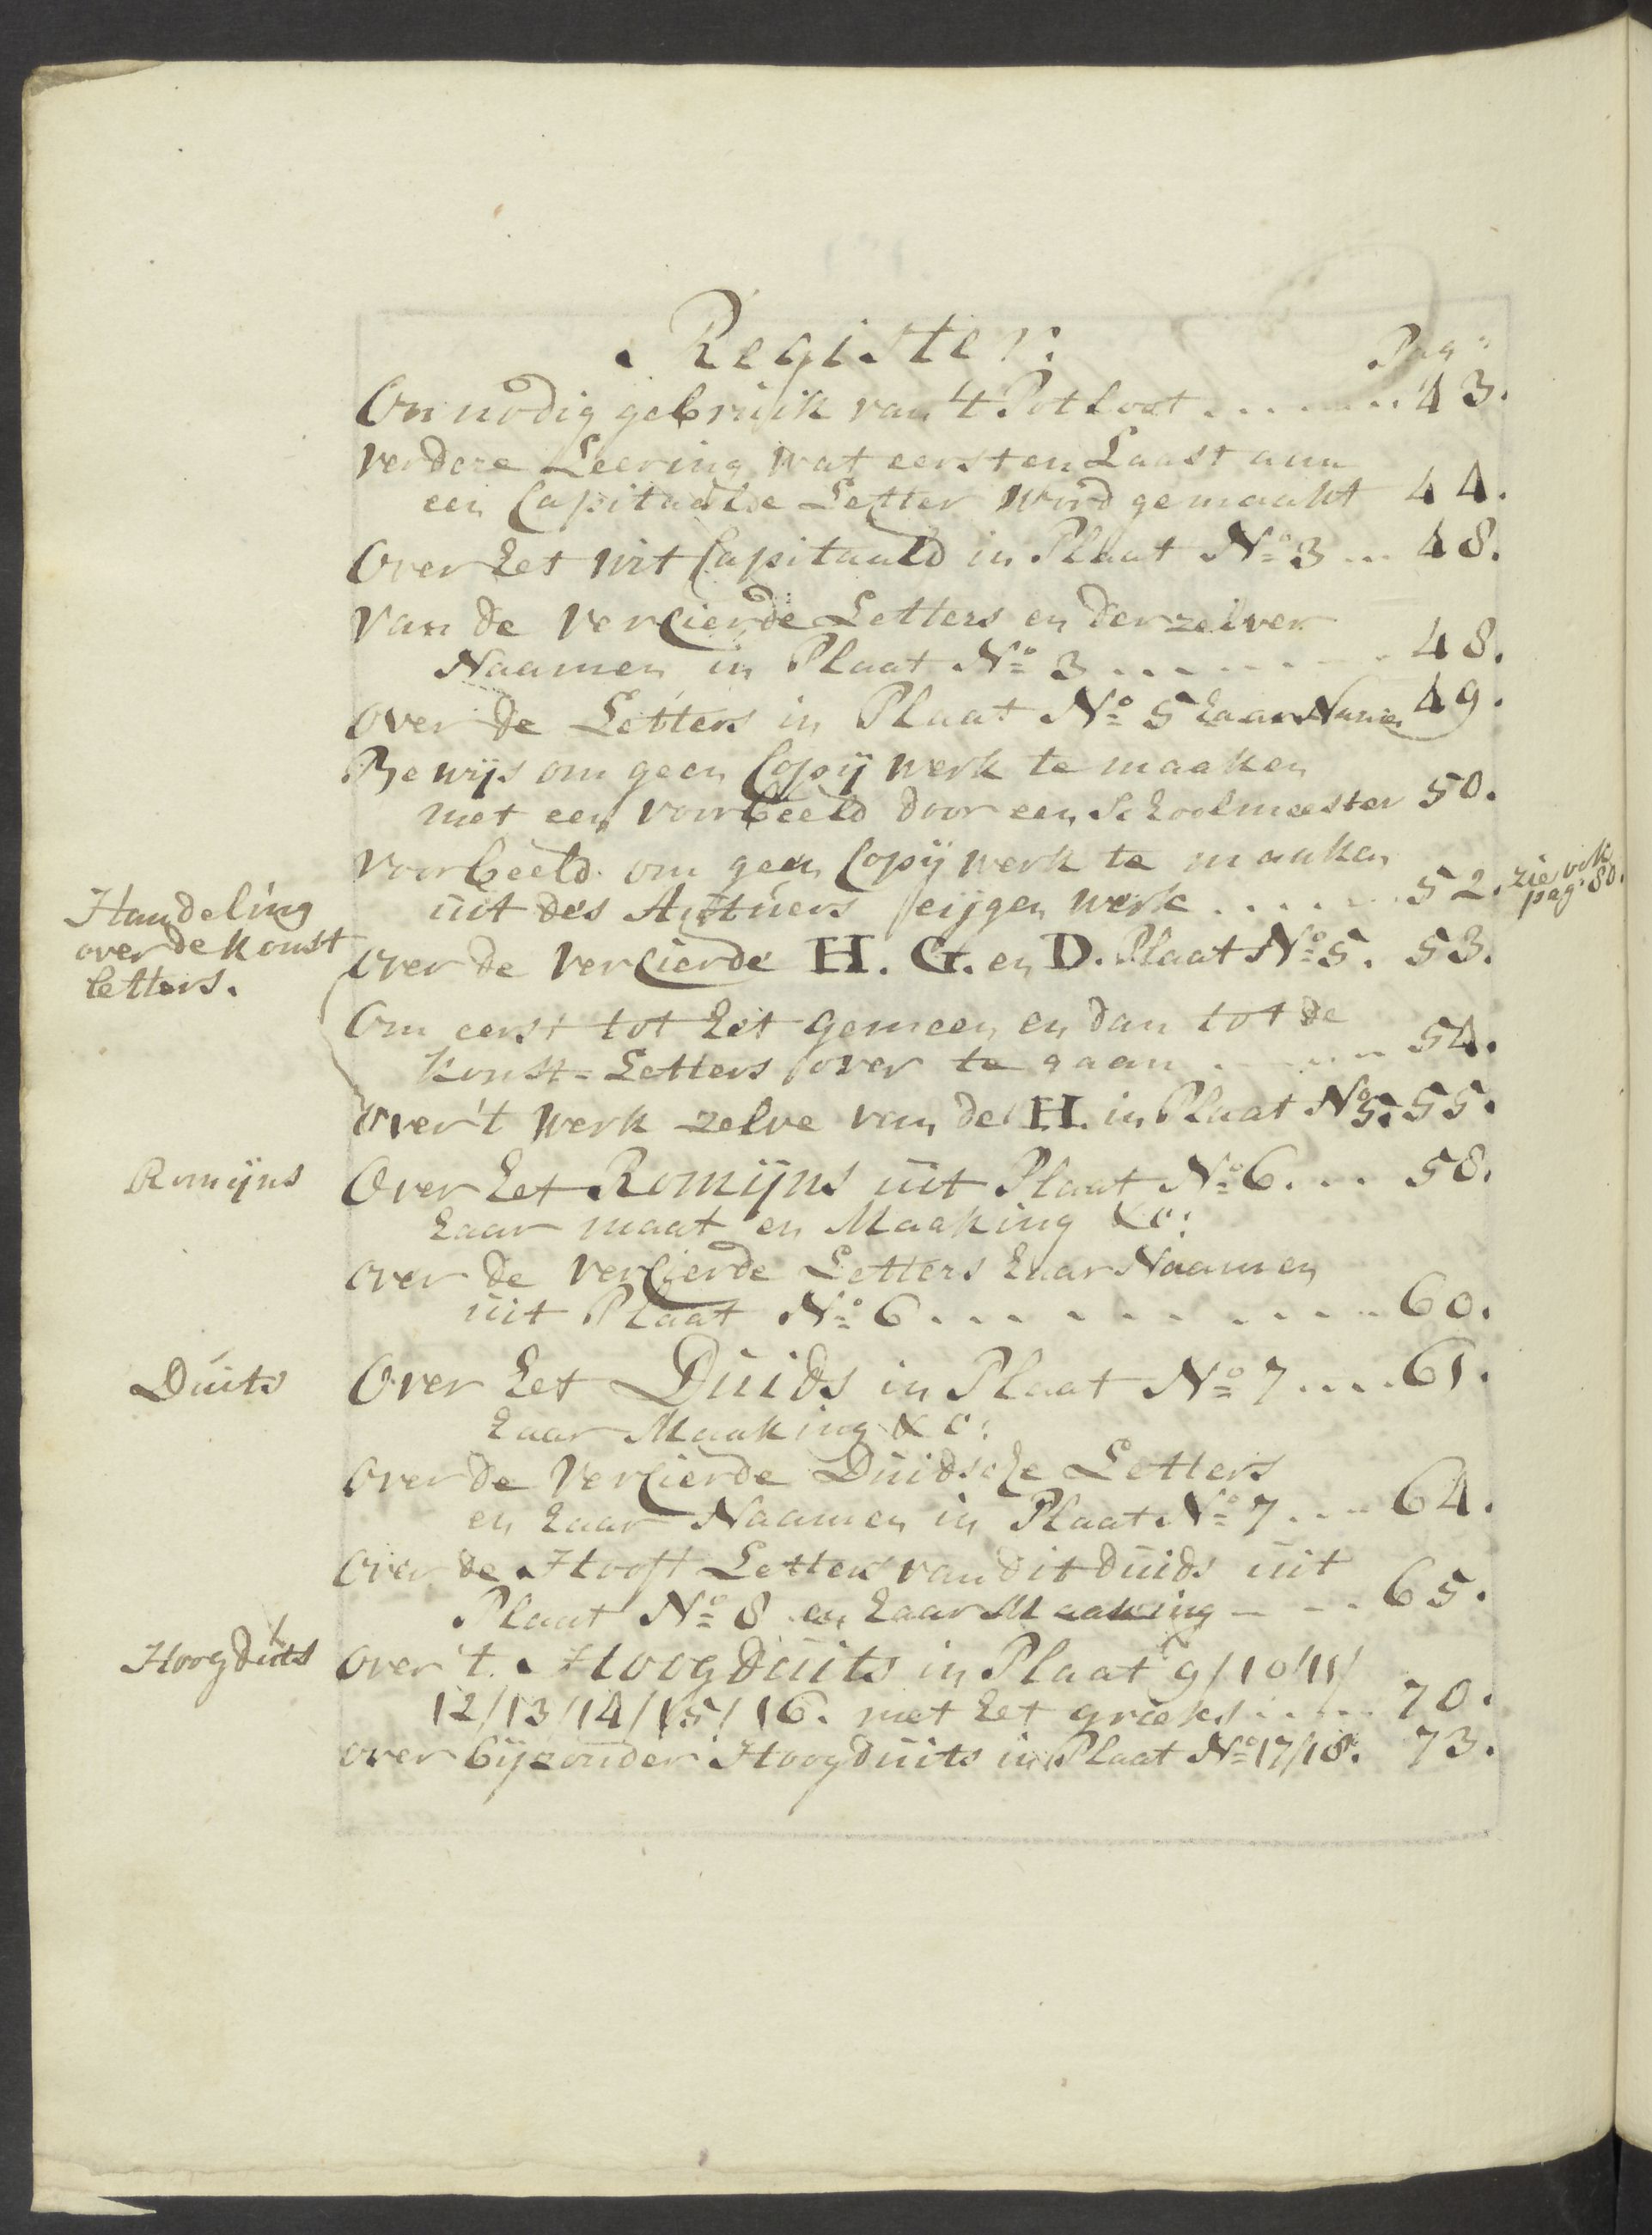 Register:
Pag:
Onnodig gebruik van 't Potloot ........ 43.
verdere Leering wat eerst en Laast aan
een Capitaalse Letter word gemaakt 44.
Over het wit Capitaald in Plaat No 3 ... 48.
Van de Vercierde Letters en derzelver
Naamen in Plaat No 3 ........ 48.
over de Letters in Plaat No 5 haar Name 49.
Bewijs om geen Copij werk te maaken
met een voorbeeld door een Schoolmeester 50.
Voorbeeld om geen Copij werk te maaken
uit des Autúers eijgen werk ....... 52. zie ook
pag. 80.
Handeling
over de konst
letters.
over de vercierde H. G. en D. Plaat No 5. 53.
Om eerst tot het gemeen en dan tot de
Konst=Letters over te gaan ...... 54.
over't werk zelve van de H. in Plaat No 5. 55.
Romijns
Over het Romijns uit Plaat No 6 ... 58.
haar maat en Maaking &c:
over de vercierde Letters haar Naamen
uit Plaat No 6 ........... 60.
Dúits
Over het Duids in Plaat No 7 .... 61.
haar Maaking &c:
over de Vercierde Duidsche Letters
en haar Naamen in Plaat No 7 .... 64.
over de Hooft Letters van dit duids uit
Plaat No 8 en haar Maaking - - - 65.
Hoogduits
over 't Hoogduits in Plaat 9/10/11/
12/13/14/15/16. met het grieks ..... 70.
over bijzonder Hoogduits in Plaat No 17/18. 73.